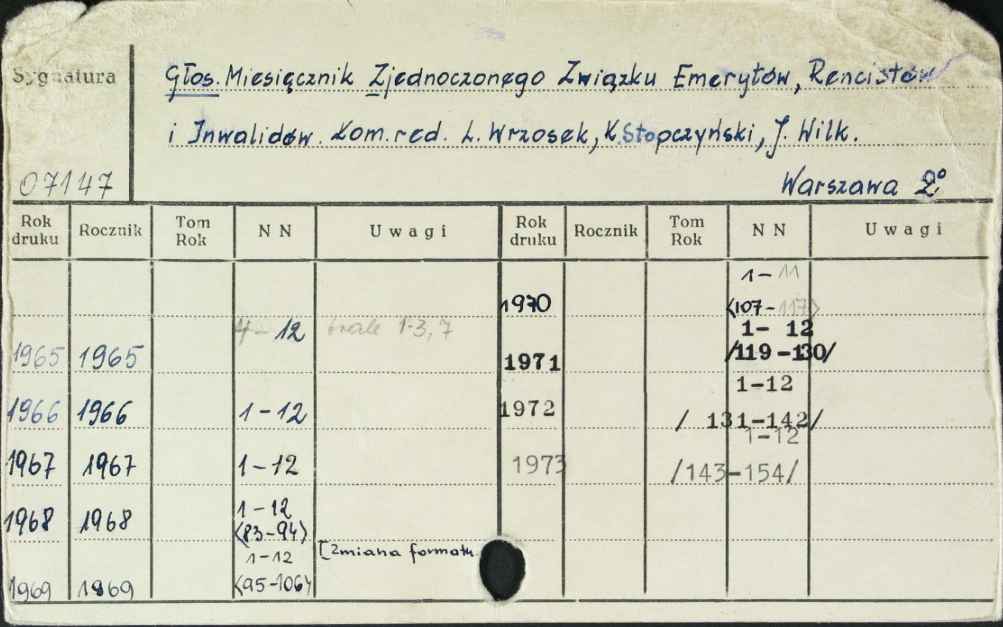 Sygnatura
Głos. Miesięcznik Zjednoczonego Związku Emerytów, Rencistów
i Inwalidów. Kom. red. L. Wrzosek, K. Stopczyński, J. Wilk.
07147 Warszawa 2°
Rok druku Rocznik Tom Rok NN Uwagi Rok druku Rocznik Tom Rok NN Uwagi
1965 1965 4-12 brak 1-3, 7
1966 1966 1-12
1967 1967 1-12
1968 1968 1-12 <83-94>
1969 1969 1-12 <95-106> [zmiana formatu
1970 1-11 <107-117>
1971 1-12 /119-130/
1972 1-12 /131-142/
1973 1-12 /143-154/